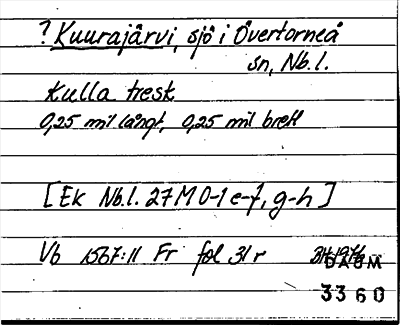 ? Kuurajärvi, sjö i Övertorneå
sn, Nb.l.
Kulla tresk
0,25 mil långt, 0,25 mil brett
[Ek Nb.l. 27M 0-1 e-f, g-h]
Vb 1567:11 Fr fol 31 r
DAUM
3360